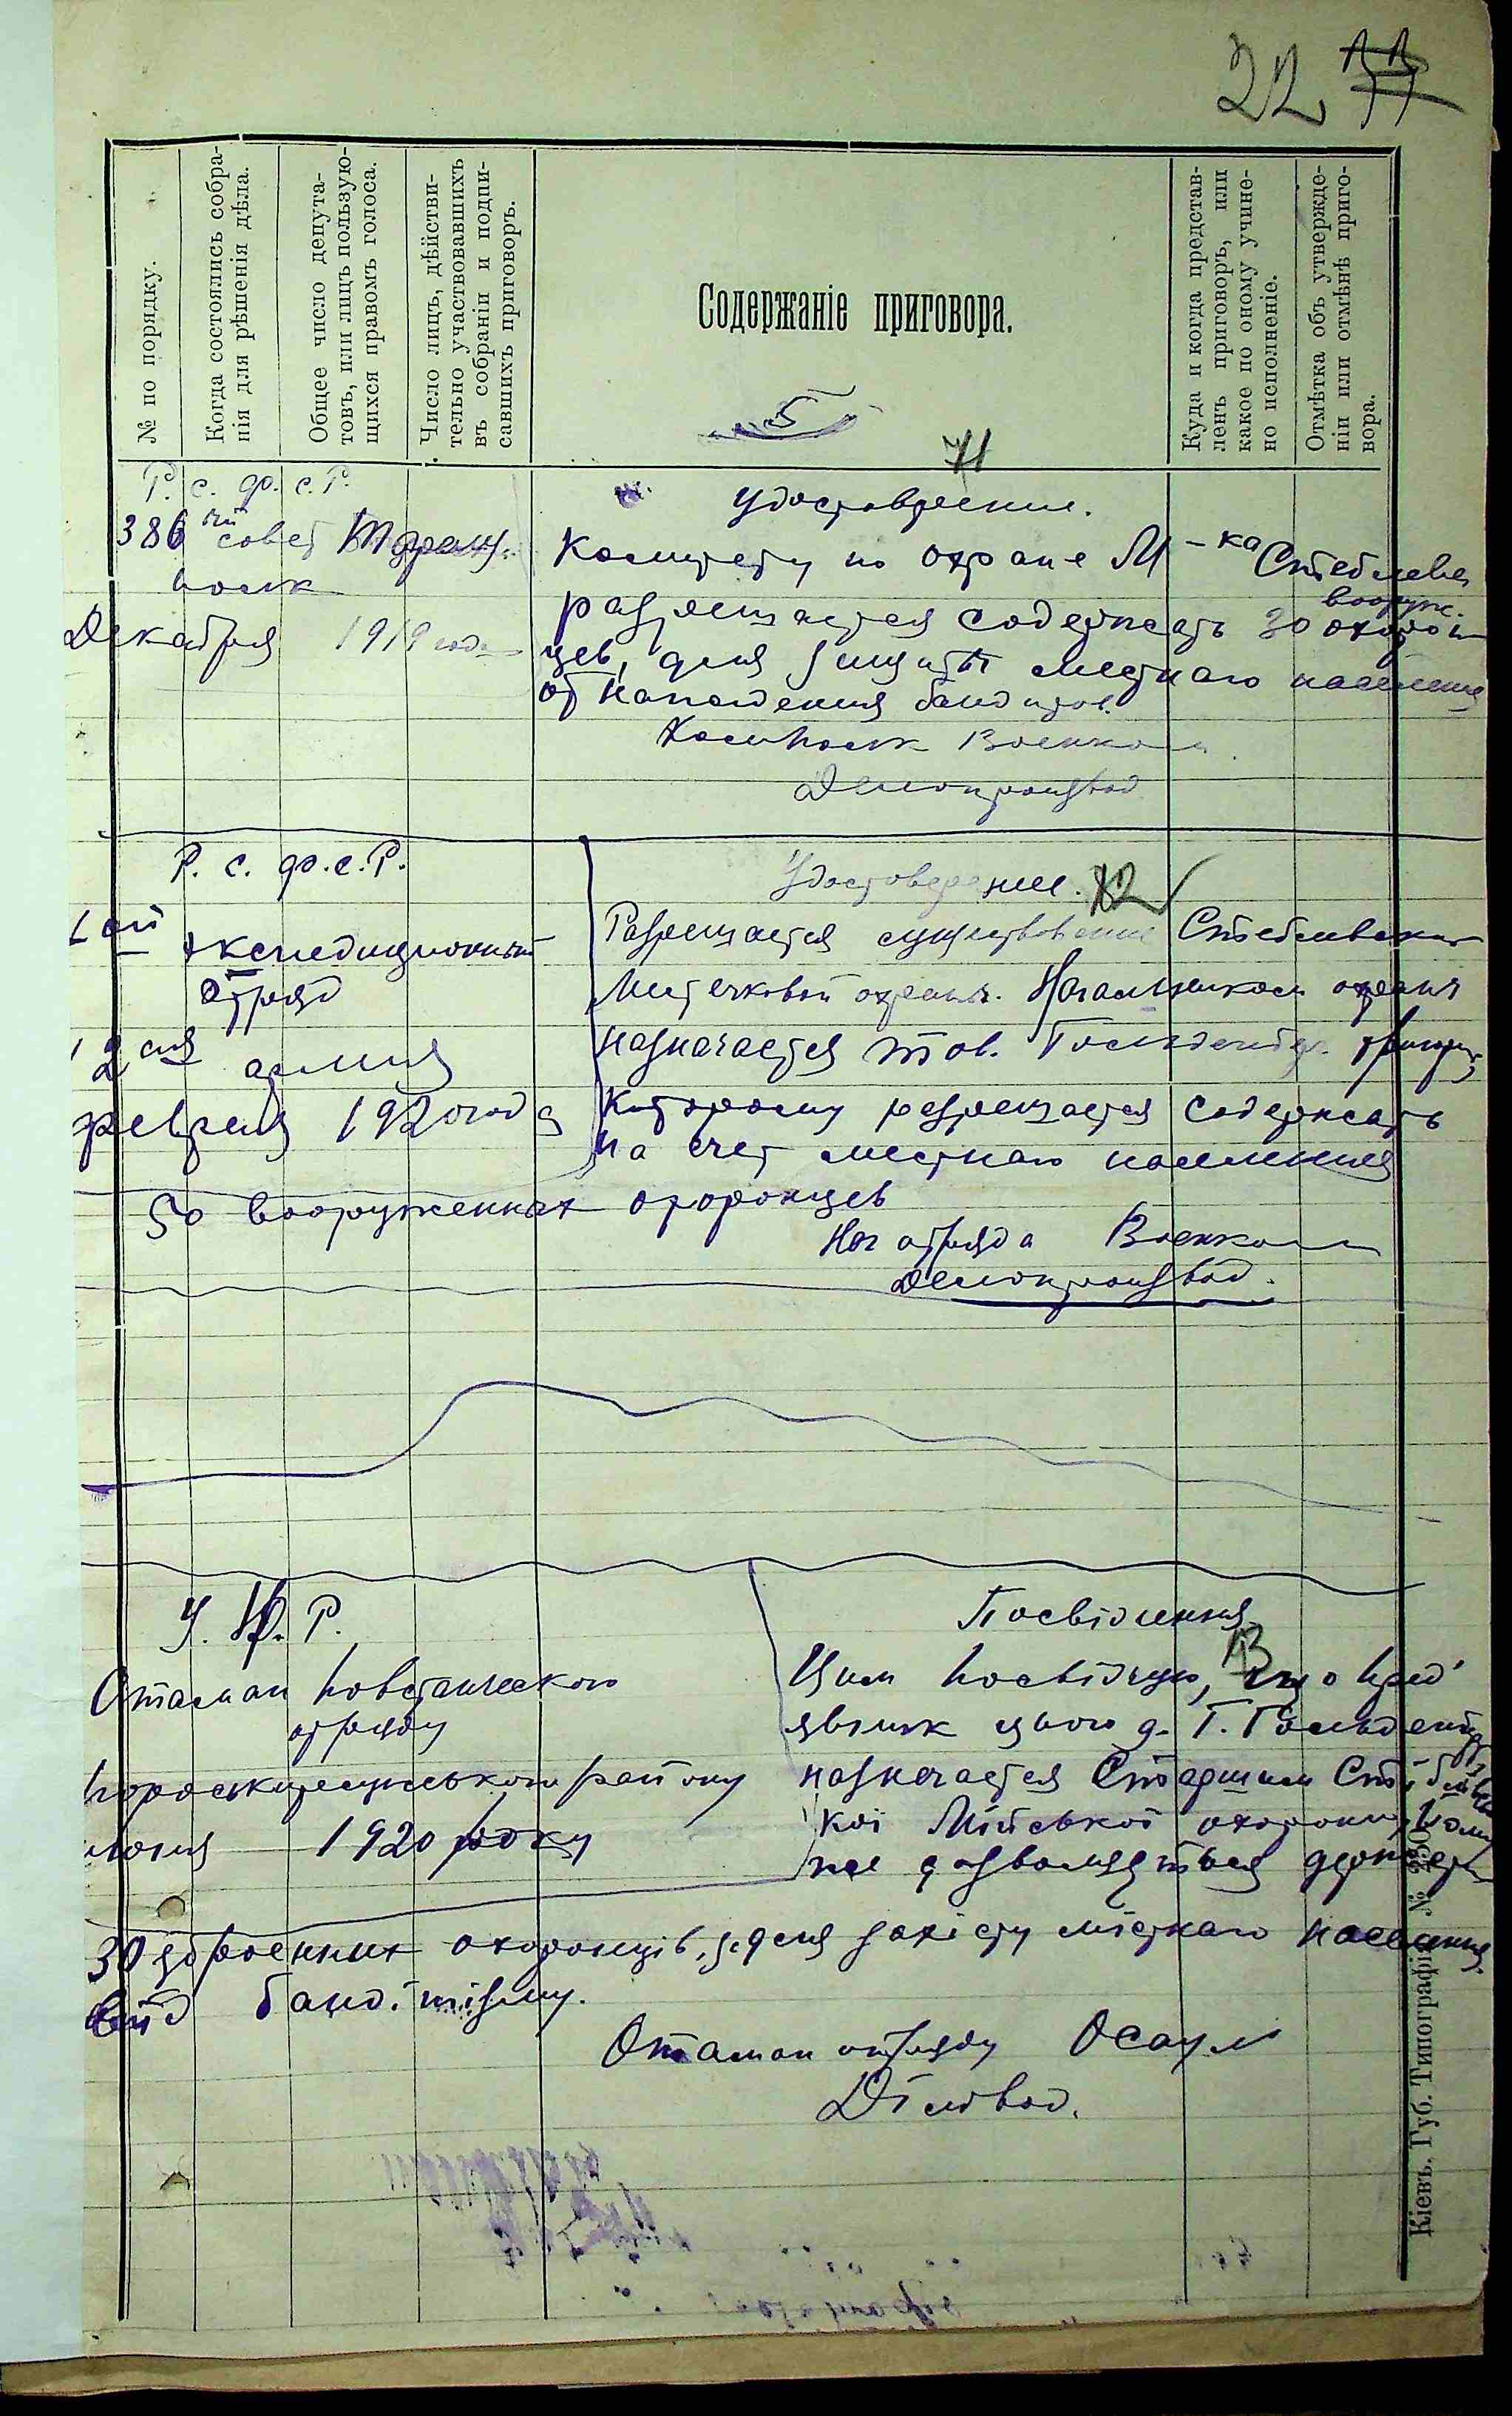 22
№ по порядку.
Когда состоялись собра-
нія для рѣшенія дѣла.
Общее число депута-
товъ, или лицъ пользую-
щихся правомъ голоса.
Число лицъ, дѣйстви-
тельно участвовавшихъ
въ собраніи и подпи-
савшихъ приговоръ.
Содержаніе приговора.
5
Куда и когда представ-
ленъ приговоръ, или
какое по оному учине-
но исполненіе.
Отмѣтка объ утвержде-
ніи или отмѣнѣ приго-
вора.
Р. с. ф. с. Р.
386 ый совет
полк
Декабря 1919 года
71
Удостоверение.
Комитету по охране М-ка Стеблева
вооруж.
разрешается содержать 30 охорон
цев, для защиты местнаго населения
от нападения бандитов.
Комполк Военком
Делопроизвод
Р. с. ф. с. Р.
1ый экспедиционный
отряд
12 ая армия
февраля 1920 года
Удостоверение.
Разрешается существование Стеблевской
Местечковой охраны. Начальником охраны
назначается тов. Гольденберг
Которому разрешается содержать
на счет местнаго населения
50 вооруженных охоронцев
Нач отряда Военком
Делопроизвод.
У. Н. Р.
Отаман повстанческого
отряду
району
июня 1920 року
Посвідчення
Цим посвідчую, що пред'
явник цього г. Г. Гольденберг
назначается Старшим Стеблевсь
кої Мійської охорони, йому
же дозволяеться держать
30 зброенних охоронців, для захісту містнаго населения
від бандітізму.
Отаман отряду Осаул
Діловод.
Кіевъ. Губ. Типографія №